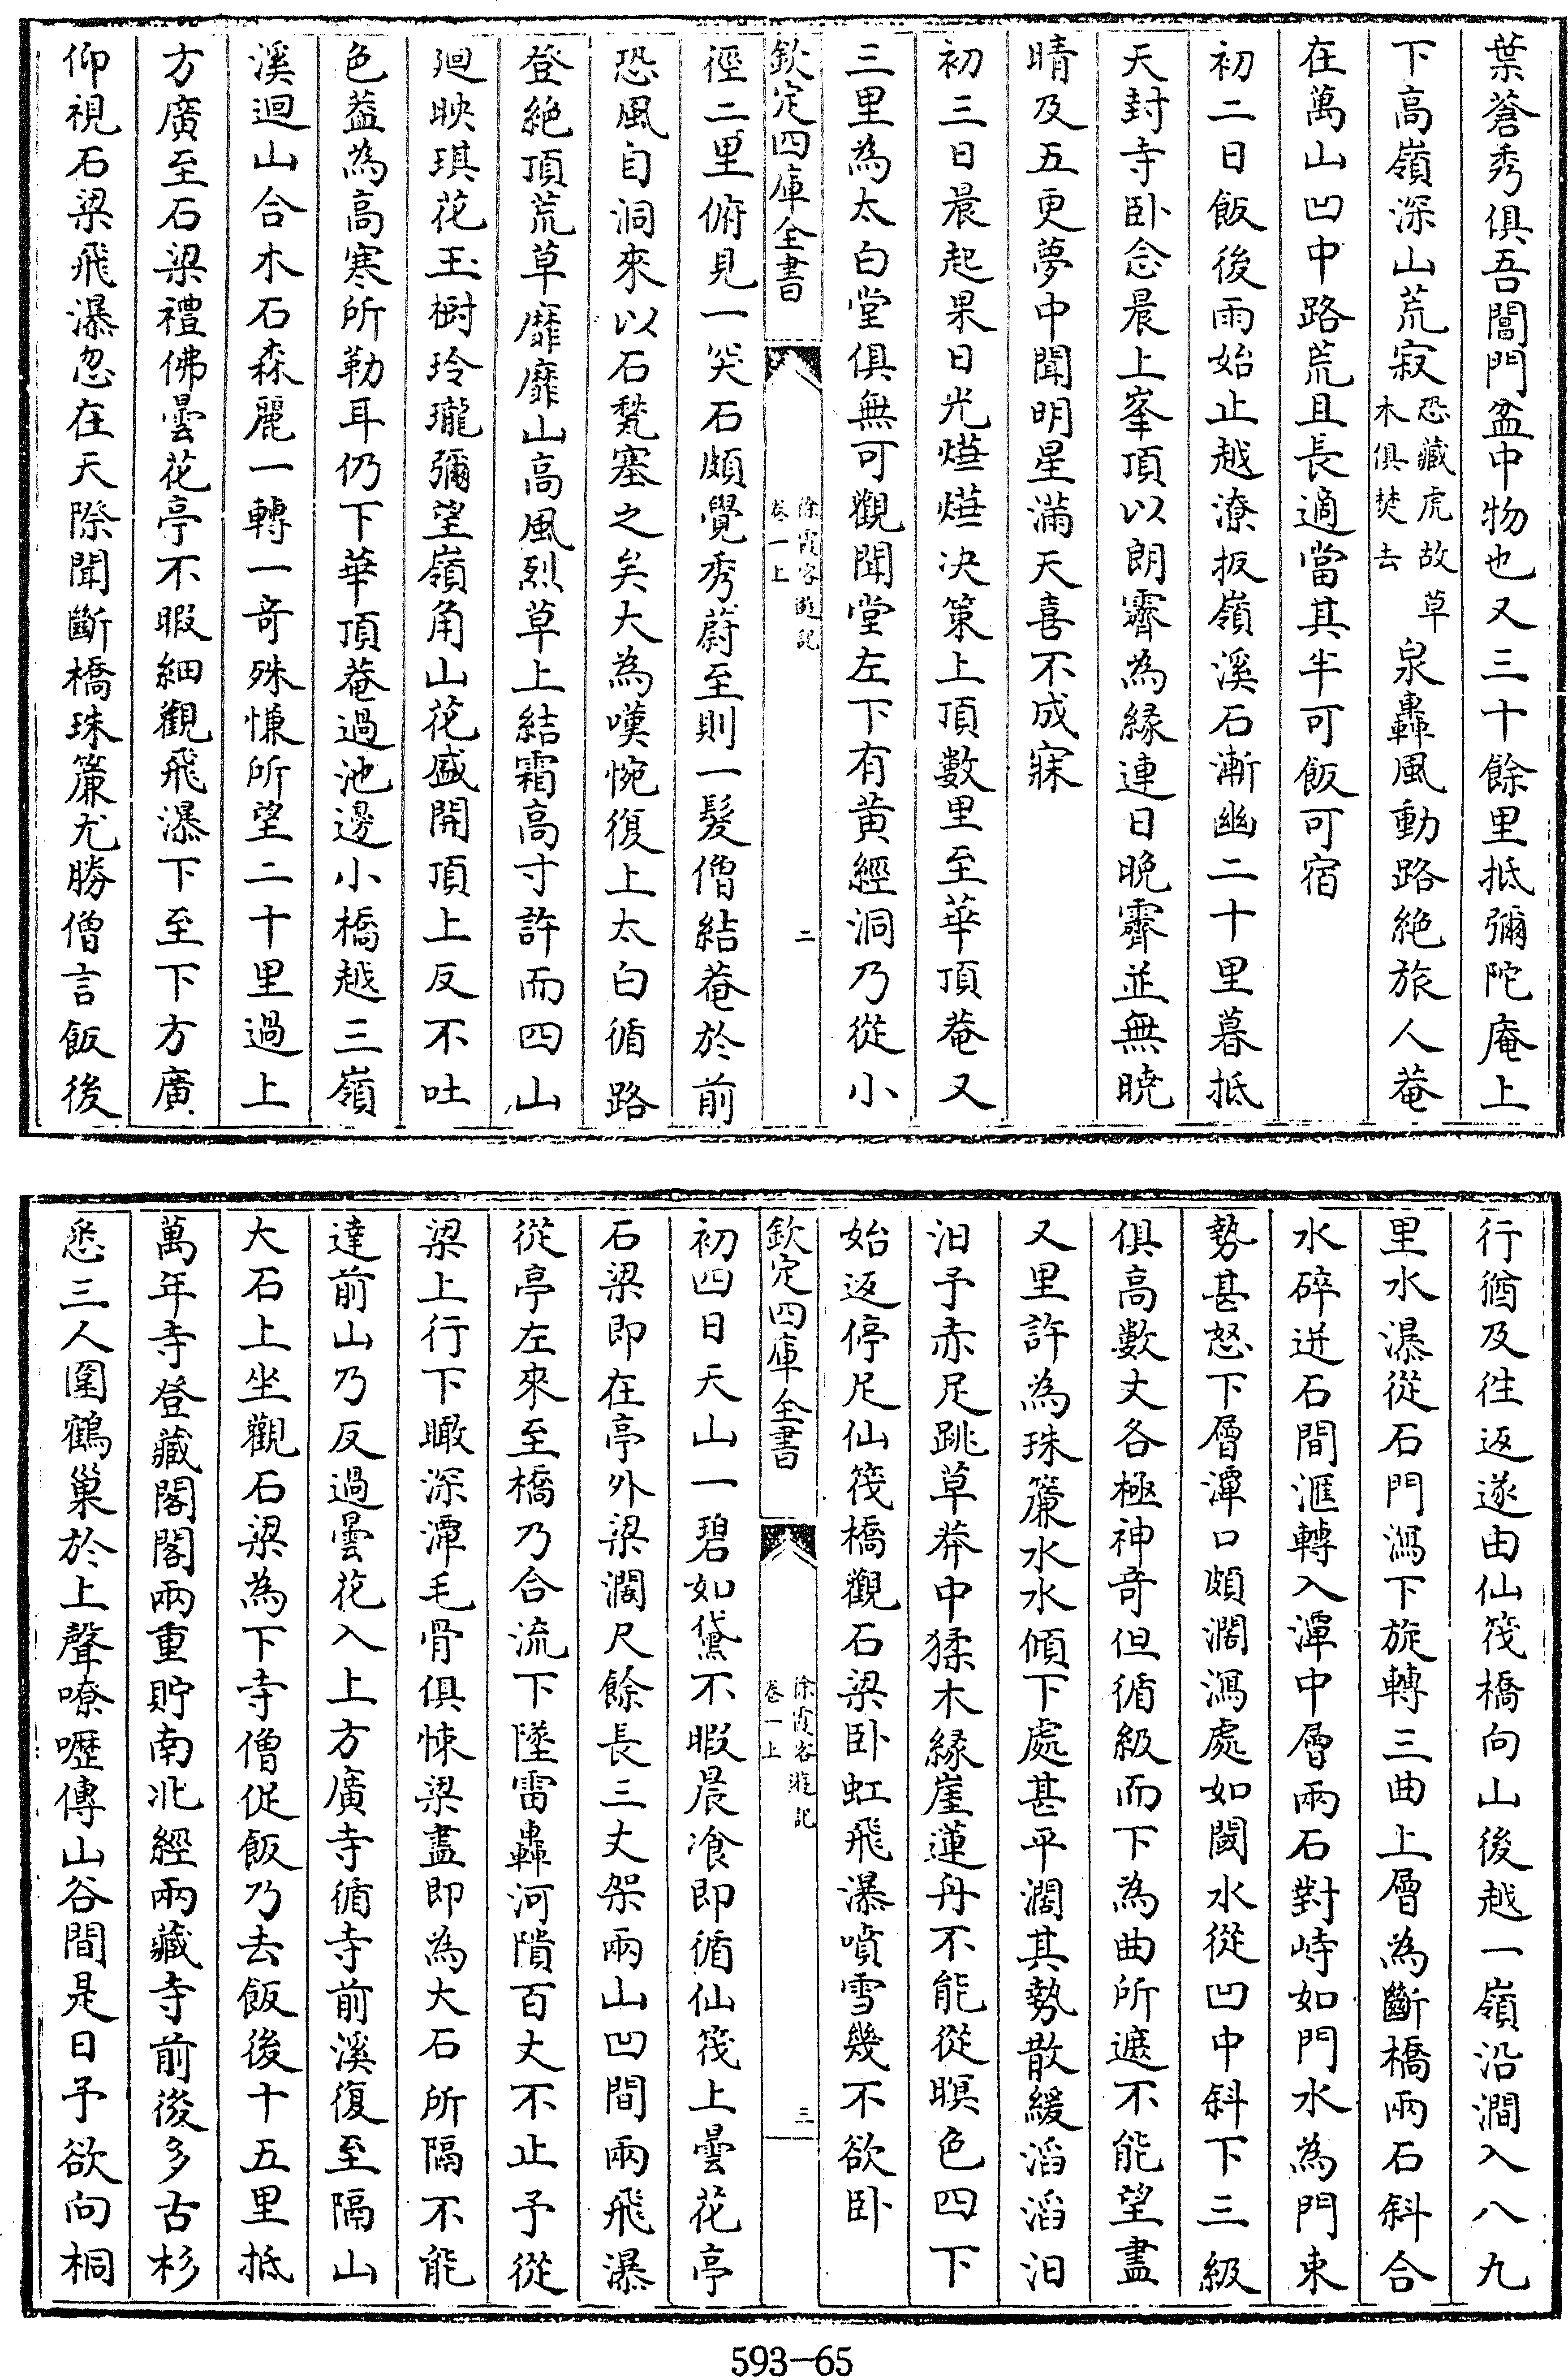 葉蒼秀俱吾閶門盆中物也又三十餘里抵彌陀庵上
下高嶺深山荒寂恐藏虎故草木俱焚去泉轟風動路絶旅人菴
在萬山凹中路荒且長適當其半可飯可宿
初二日飯後雨始止越潦扳嶺溪石漸幽二十里暮抵
天封寺卧念晨上峯頂以朗霽為縁連日晚霽並無曉
晴及五更夢中聞明星滿天喜不成寐
初三日晨起果日光燁燁决策上頂數里至華頂菴又
三里為太白堂俱無可觀聞堂左下有黄經洞乃從小
欽定四庫全書
徐霞客遊記
卷一上
二
徑二里俯見一突石頗覺秀蔚至則一髮僧結菴於前
恐風自洞來以石甃塞之矣大為嘆惋復上太白循路
登絶頂荒草靡靡山高風烈草上結霜高寸許而四山
廻映琪花玉樹玲瓏彌望嶺角山花盛開頂上反不吐
色葢為高寒所勒耳仍下華頂菴過池邊小橋越三嶺
溪迴山合木石森麗一轉一奇殊慊所望二十里過上
方廣至石梁禮佛曇花亭不暇細觀飛瀑下至下方廣
仰視石梁飛瀑忽在天際聞斷橋珠簾尤勝僧言飯後
行猶及徃返遂由仙筏橋向山後越一嶺沿澗入八九
里水瀑從石門瀉下旋轉三曲上層為斷橋兩石斜合
水碎迸石間滙轉入潭中層兩石對峙如門水為門束
勢甚怒下層潭口頗濶瀉處如閾水從凹中斜下三級
俱高數丈各極神奇但循級而下為曲所遮不能望盡
又里許為珠簾水水傾下處甚平濶其勢散緩滔滔汩
汩予赤足跳草莽中揉木縁崖蓮舟不能從暝色四下
始返停足仙筏橋觀石梁卧虹飛瀑噴雪幾不欲卧
欽定四庫全書
徐霞客遊記
卷一上
三
初四日天山一碧如黛不暇晨飡即循仙筏上曇花亭
石梁即在亭外梁濶尺餘長三丈架兩山凹間兩飛瀑
從亭左來至橋乃合流下墜雷轟河隤百丈不止予從
梁上行下瞰深潭毛骨俱悚梁盡即為大石所隔不能
達前山乃反過曇花入上方廣寺循寺前溪復至隔山
大石上坐觀石梁為下寺僧促飯乃去飯後十五里抵
萬年寺登藏閣閣兩重貯南北經兩藏寺前後多古杉
悉三人圍鶴巢於上聲嘹嚦傳山谷間是日予欲向桐
593-65